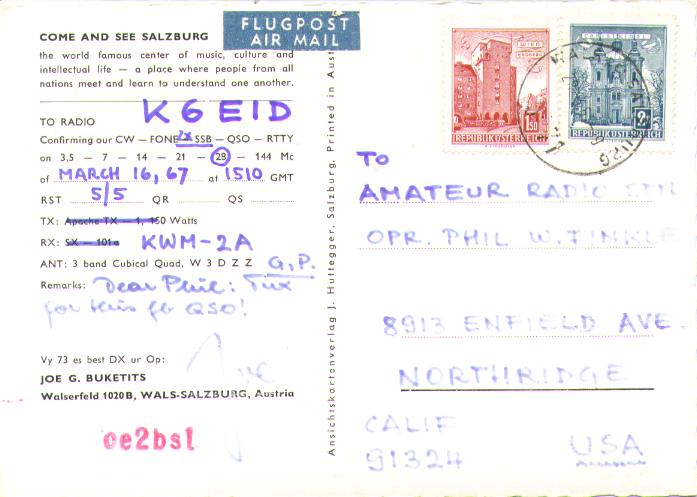 FLUGPOST
AIR MAIL
COME AND SEE SALZBURG
the world famous center of music, culture and
intellectual life — a place where people from all
nations meet and learn to understand one another.
TO RADIO K6EID
Confirming our CW — FONE 2x SSB — QSO — RTTY
on 3,5 — 7 — 14 — 21 — 28 — 144 Mc
of MARCH 16, 67 at 1510 GMT
RST 5/5 QR QS
TX: Apache TX — 1, 150 Watts
RX: SX — 101a KWM-2A
ANT: 3 band Cubical Quad, W 3 D Z Z G.P.
Remarks: Dear Phil: Tnx
for this fb QSO!
Vy 73 es best DX ur Op:
JOE G. BUKETITS
Walserfeld 1020B, WALS-SALZBURG, Austria
oe2bsl
Ansichtskartenverlag J. Huttegger, Salzburg, Printed in Aust
WIEN
ERDBERG
1.50
REPUBLIK ÖSTERREICH
CHRISTKINDL
2
REPUBLIK ÖSTERREICH
TO
AMATEUR RADIO STN
OPR. PHIL W. FINKLE
8913 ENFIELD AVE.
NORTHRIDGE
CALIF
91324 USA